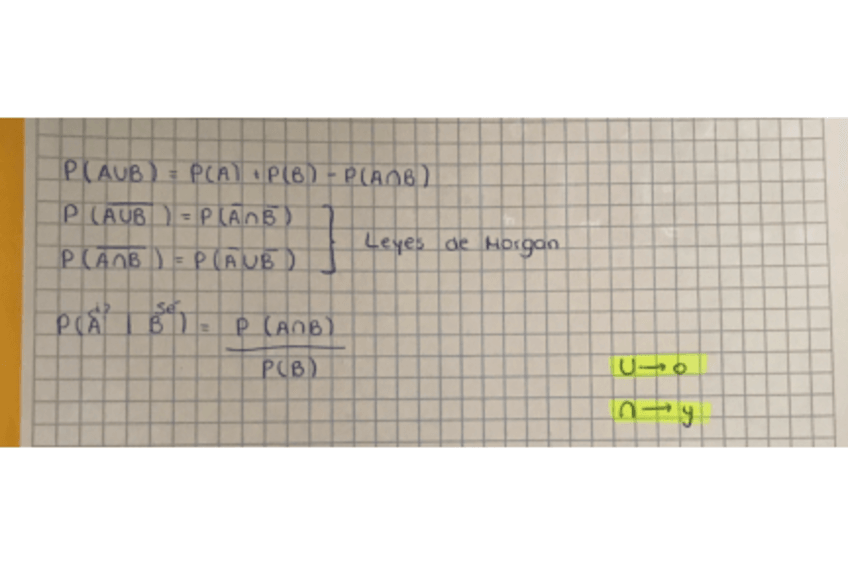 P(A∪B) = P(A) + P(B) - P(A∩B)
P(A̅∪̅B̅) = P(A̅∩B̅)
P(A̅∩̅B̅) = P(A̅∪B̅)
Leyes de Morgan
P(A | B) = P(A∩B) / P(B)
¿? Sé
∪→o
∩→y